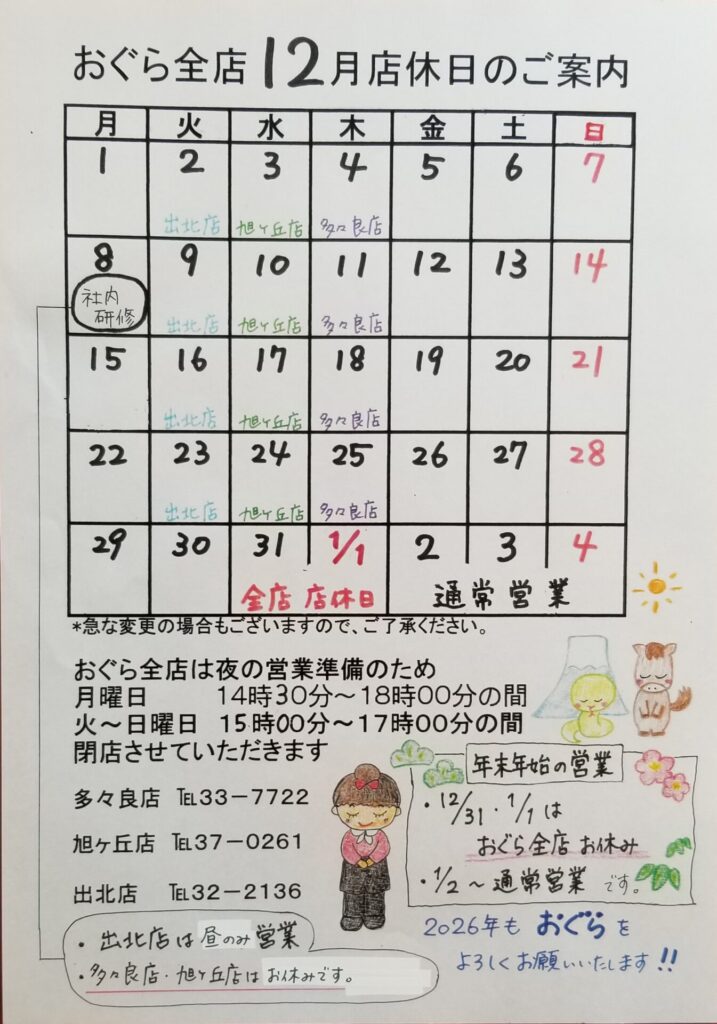 おぐら全店12月店休日のご案内
月 火 水 木 金 土 日
1 2 3 4 5 6 7
出北店 旭ヶ丘店 多々良店
8 9 10 11 12 13 14
社内
研修
出北店 旭ヶ丘店 多々良店
15 16 17 18 19 20 21
出北店 旭ヶ丘店 多々良店
22 23 24 25 26 27 28
出北店 旭ヶ丘店 多々良店
29 30 31 1/1 2 3 4
全店 店休日 通常営業
*急な変更の場合もございますので、ご了承ください。
おぐら全店は夜の営業準備のため
月曜日 14時30分～18時00分の間
火～日曜日 15時00分～17時00分の間
閉店させていただきます
多々良店 ℡33－7722
旭ヶ丘店 ℡37－0261
出北店 ℡32－2136
・出北店は昼のみ営業
・多々良店・旭ヶ丘店はお休みです。
年末年始の営業
・12/31・1/1は
おぐら全店 お休み
・1/2～通常営業です。
2026年も おぐらを
よろしくお願いいたします!!